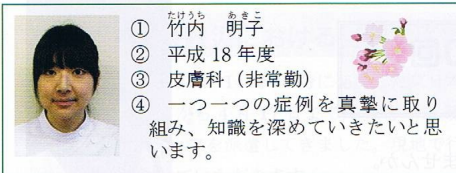 たけうち　あきこ
① 竹内　明子
② 平成 18 年度
③ 皮膚科（非常勤）
④ 一つ一つの症例を真摯に取り
組み、知識を深めていきたいと思
います。